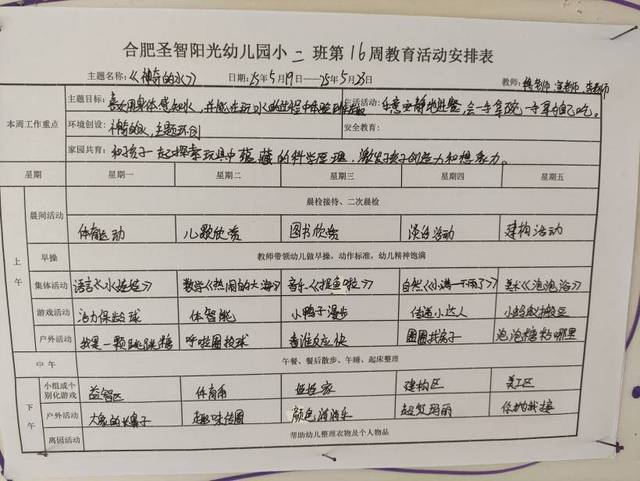 合肥圣智阳光幼儿园小二班第16周教育活动安排表
主题名称：《神奇的水》 日期：25年5月19日—25年5月23日 教师：
本周工作重点
主题目标：喜欢用身体感知水，并能在玩水的过程中 生活活动：
环境创设：神奇的水，主题环创 安全教育：
家园共育：和孩子一起探索玩具中蕴藏的科学原理，激发孩子创造力和想象力。
星期 星期一 星期二 星期三 星期四 星期五
上午
晨间活动 晨检接待、二次晨检
体育运动 儿歌欣赏 图书欣赏 建构活动
早操 教师带领幼儿做早操，动作标准，幼儿精神饱满
集体活动 语言《水娃娃》 数学《热闹的大海》 音乐《捉鱼啦》 自然《小满一下雨了》 美术《泡泡浴》
游戏活动 活力保龄球 体智能 小鸭子漫步 传递小达人 小蚂蚁搬豆
户外活动 我是一颗跳跳糖 呼啦圈投球 看谁反应快 圈圈找亲子 泡泡糖粘哪里
中午 午餐、餐后散步、午睡、起床整理
下午
小组或个别化游戏 益智区 体育角 娃娃家 建构区 美工区
户外活动 大象的长鼻子 趣味传圈 颜色消消乐 超级玛丽 你抛我接
离园活动 帮助幼儿整理衣物及个人物品